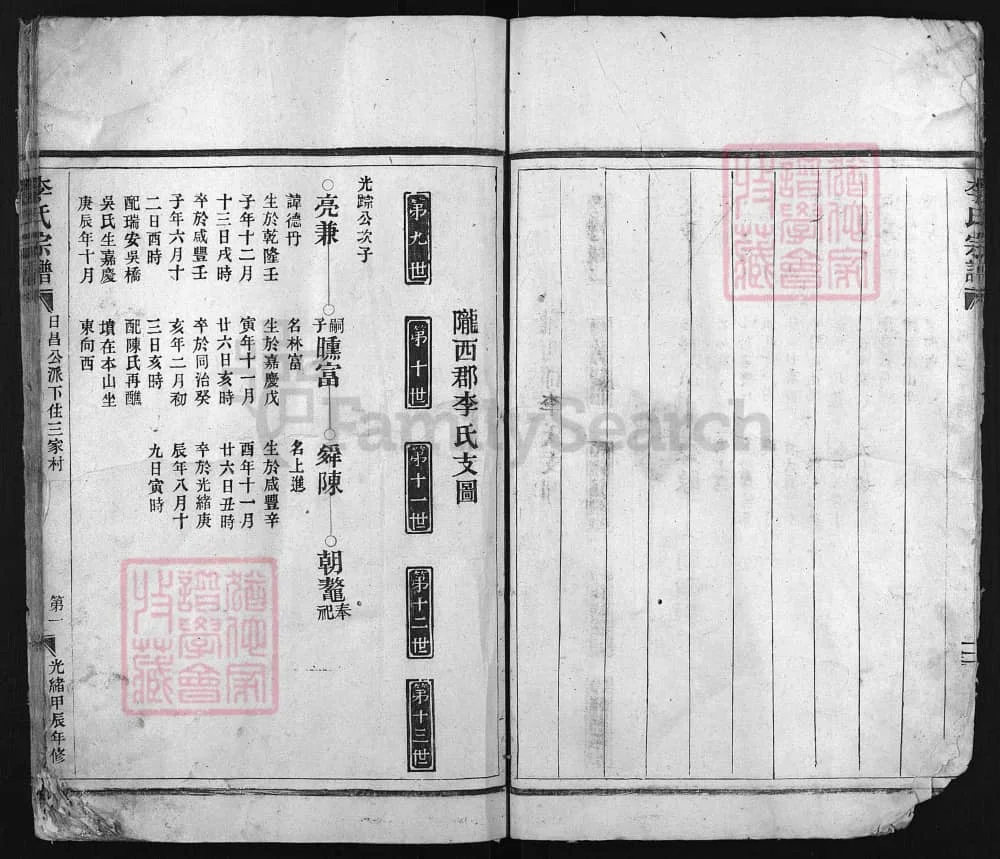 李氏宗譜
隴西郡李氏支圖
第九世
第十世
第十一世
第十二世
第十三世
光踪公次子
○亮兼
諱德丹
生於乾隆壬
子年十二月
十三日戌時
卒於咸豐壬
子年六月十
二日酉時
配瑞安吳橋
吳氏生嘉慶
庚辰年十月
○嗣子曛富
名林富
生於嘉慶戊
寅年十一月
廿六日亥時
卒於同治癸
亥年二月初
三日亥時
配陳氏再醮
墳在本山坐
東向西
○舜陳
名上進
生於咸豐辛
酉年十一月
廿六日丑時
卒於光緒庚
辰年八月十
九日寅時
○朝鼇奉祀
李氏宗譜
日昌公派下住三家村
第一
光緒甲辰年修
FamilySearch